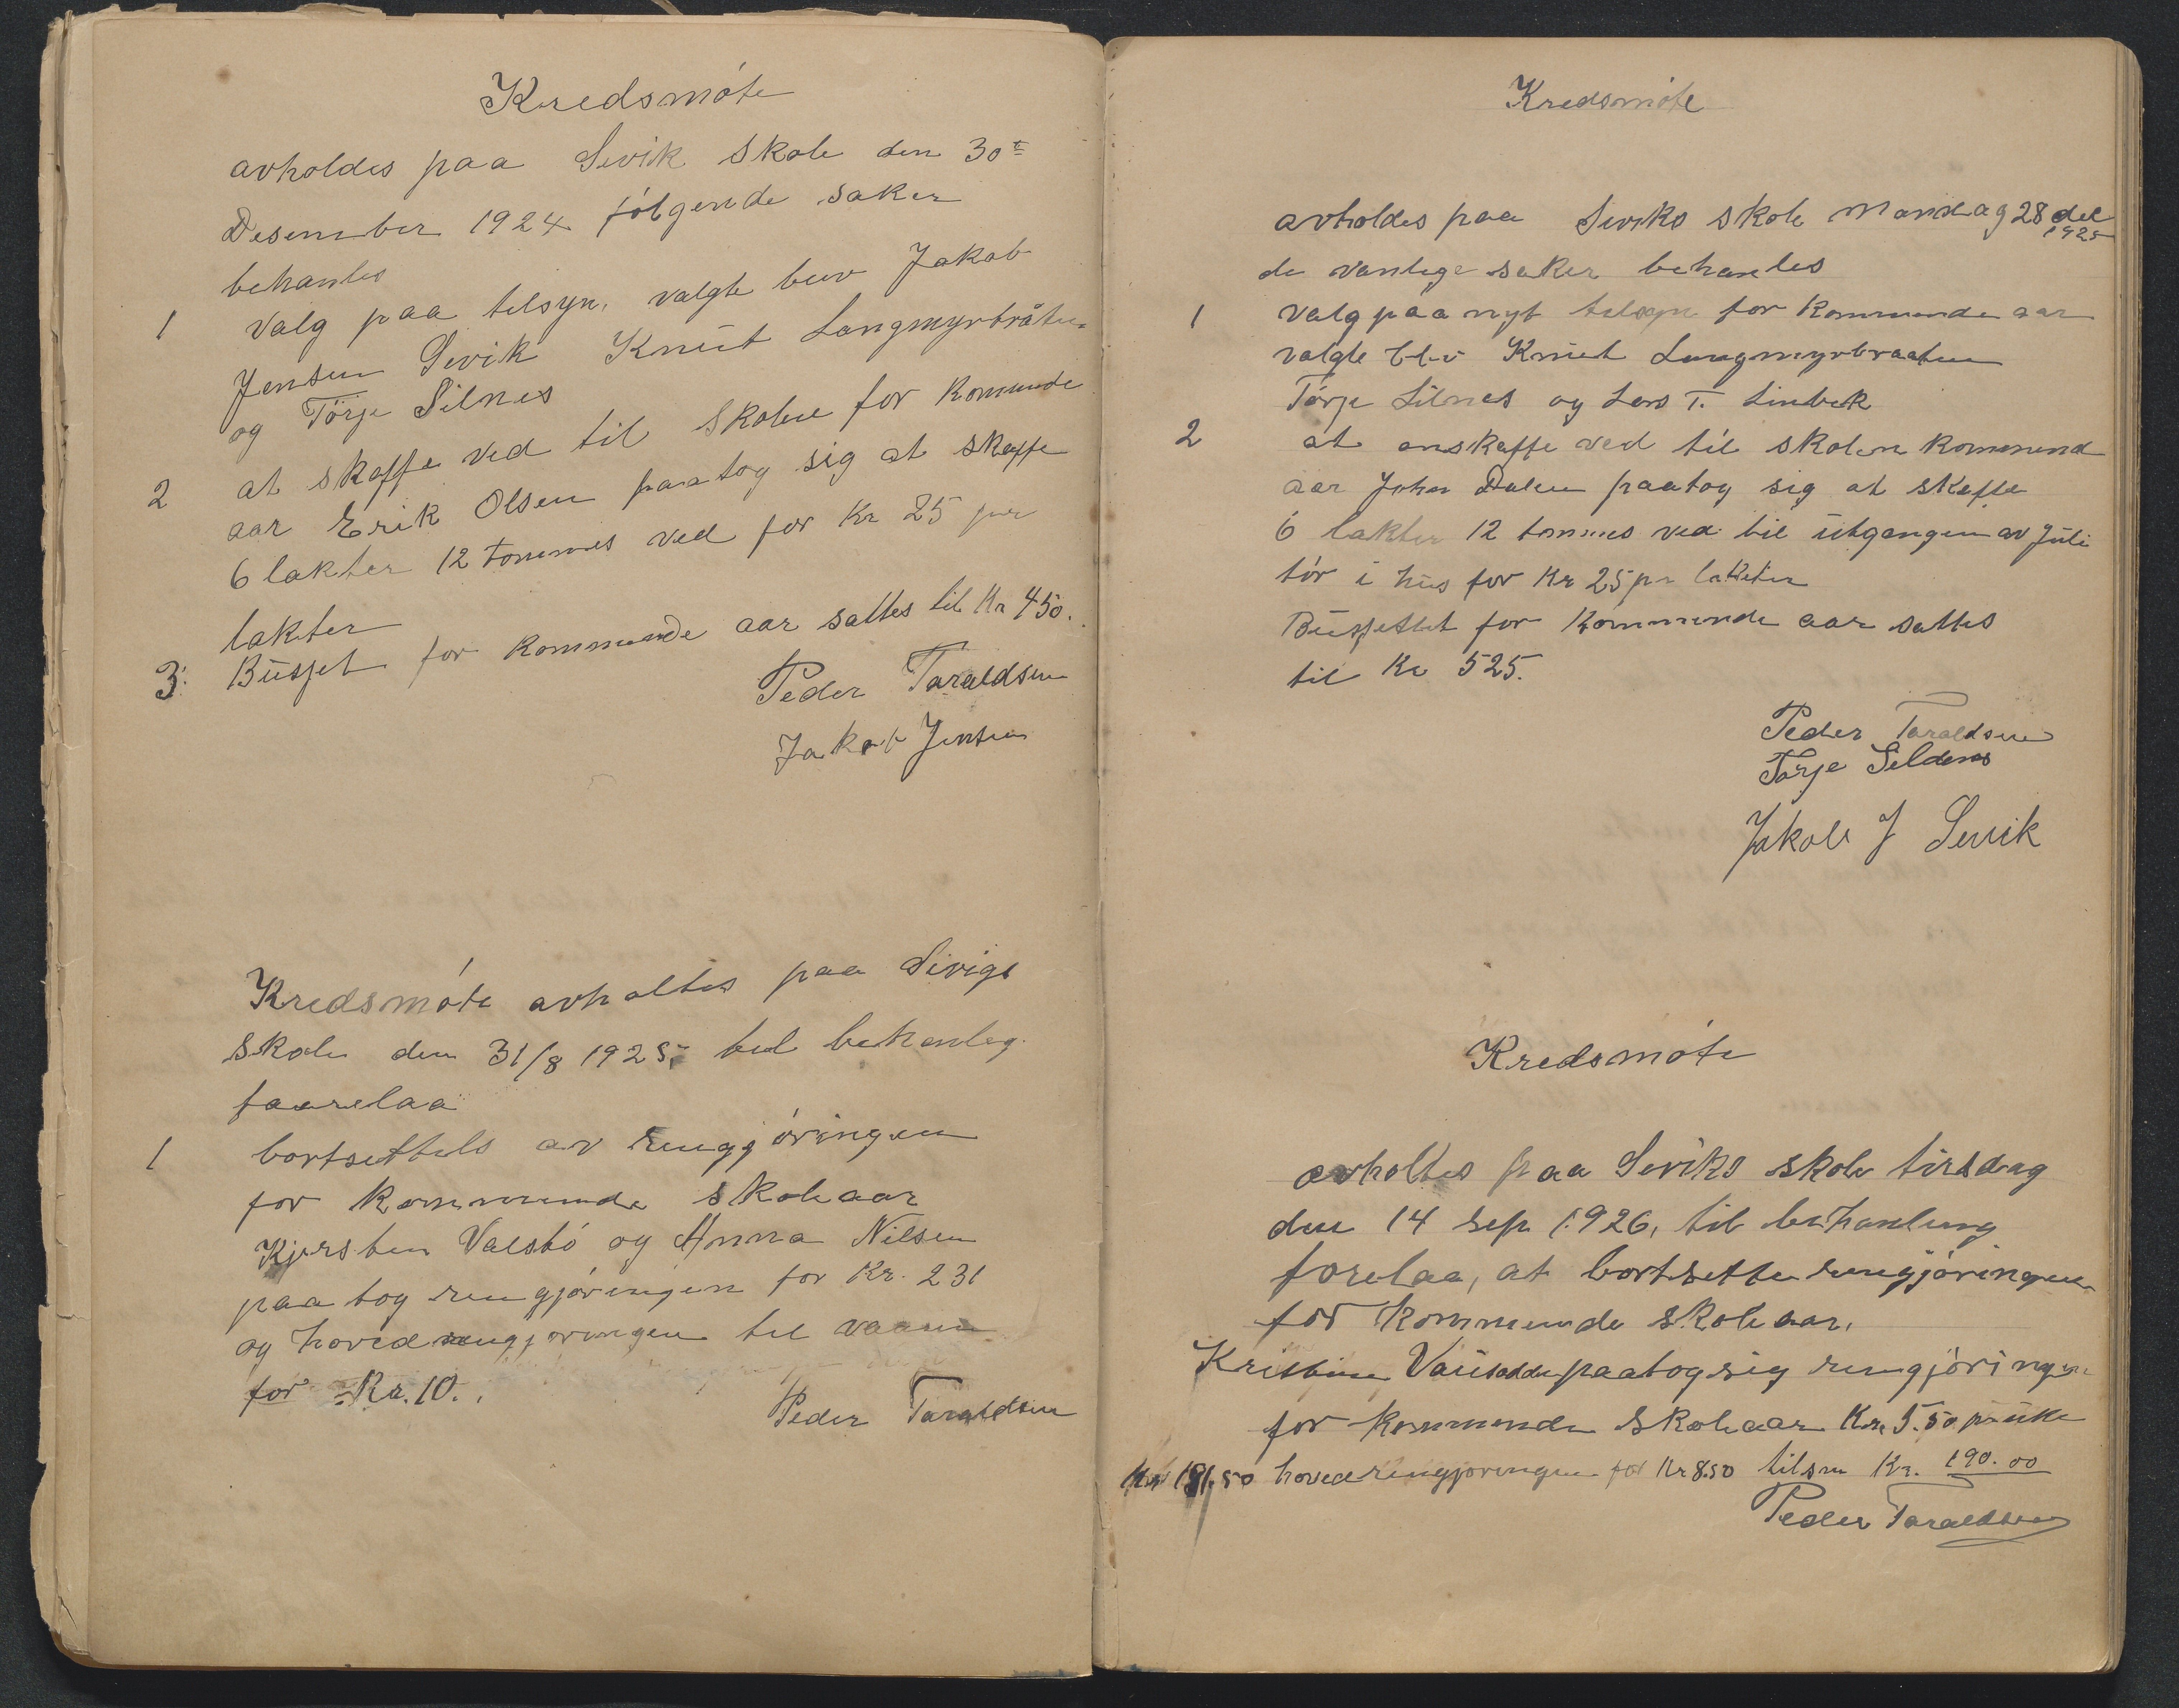 Kredsmóte
avholdes paa Sevik skole den 30te
Desember 1924 følgende saker
behanles
1 Valg paa tilsyn, valgte bev Jakob
Jensen Sevik Knut Langmyrbråten
og Törje Silnes
2 at skaffe ved til skolen for komende
aar Erik Olsen paatog sig at skaffe
6 lakter 12 tommes ved for Kr 25 per
lakter
3. Busjet for kommende aar sattes til Kr 450.
Peder Taraldsen
Jakob Jensen
Kredsmóte avholtes paa Sivigs
skole den 31/8 1925, til behanleg
faarelaa
1 bortsettels av rengjóringen
for kommende skoleaar
Kjersten Valsbó og Anna Nilsen
paatog rengjóringen for Kr. 231
og hovedrengjoringen til vaaren
for Kr. 10.
Peder Taraldsen
Kredsmóte
avholdes paa Seviks skole Mandag 28 des
1925
de vanlige saker behanles
1 Valg paa nyt tilsyn for kommende aar
valgte blev Knut Langmyrbraaten
Tórje Silnes og Lars T. Linbek
2 at anskaffe ved til skolen kommend
aar John Dalen paatog sig at skaffe
6 lakter 12 tommes ved til utgangen av Juli
tór i hus for Kr 25 pr lakter
Busjettet for kommende aar sattes
til Kr 525.
Peder Taraldsen
Tórje Seldnes
Jakob J Sevik
Kredsmóte
avholtes paa Seviks skole tirsdag
den 14 sep 1926, til behanlung
forelaa, at bortsette rengjóringen
for kommende skoleaar.
Kristine paatog sig rengjóringen
for kommende skoleaar Kr. 5.50 pr uke
Kr 181.50 hovedrengjoringen for Kr 8.50 tilsm Kr. 190.00
Peder Taraldsen